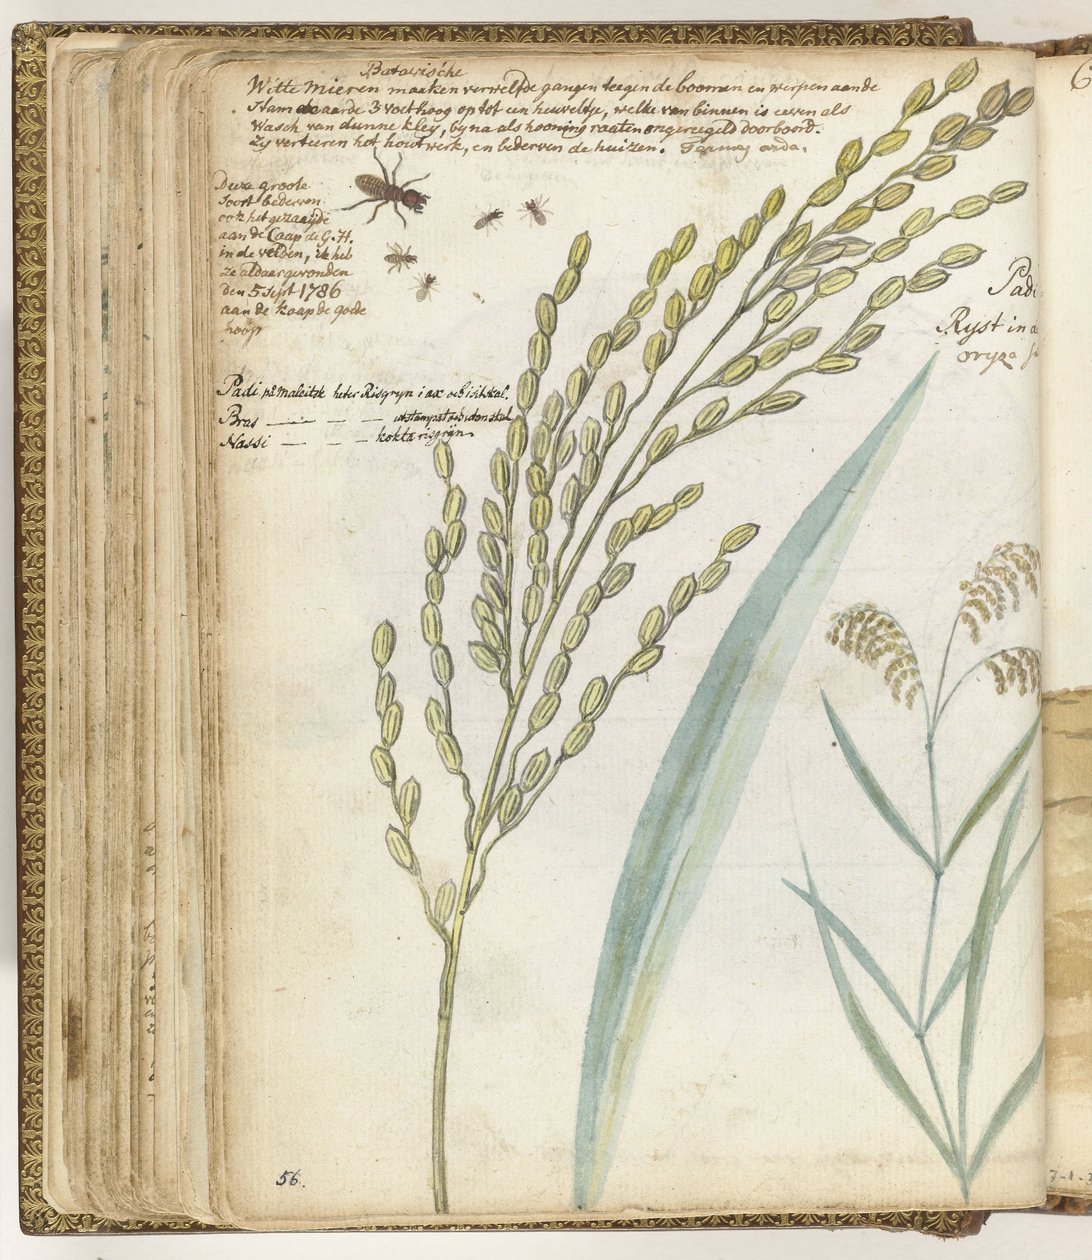 Batavische
Witte mieren maaken verwelfde gangen teegen de boomen en werpen aande
Stam de aarde 3 voet hoog op tot een heuveltje, welke van binnen is eeven als
Wasch van dunne kley, byna als hooning raaten ongereegeld doorboord.
Zy verteeren het houtwerk, en bederven de huizen. Termes
Deeze groote
Soort bederven
ook het gezaaijde
aan de Caap d. G. H.
in de velden, ik heb
ze aldaar gevonden
den 5 Sept 1786
aan de kaap de gode
hoop
Padi på Maleitsk heter Risgryn i ax och i skal.
Bras — — — utstampat och utan skal
Nassi — — — kokta risgryn
Padi
Ryst in de
oryza
56.
7-1-